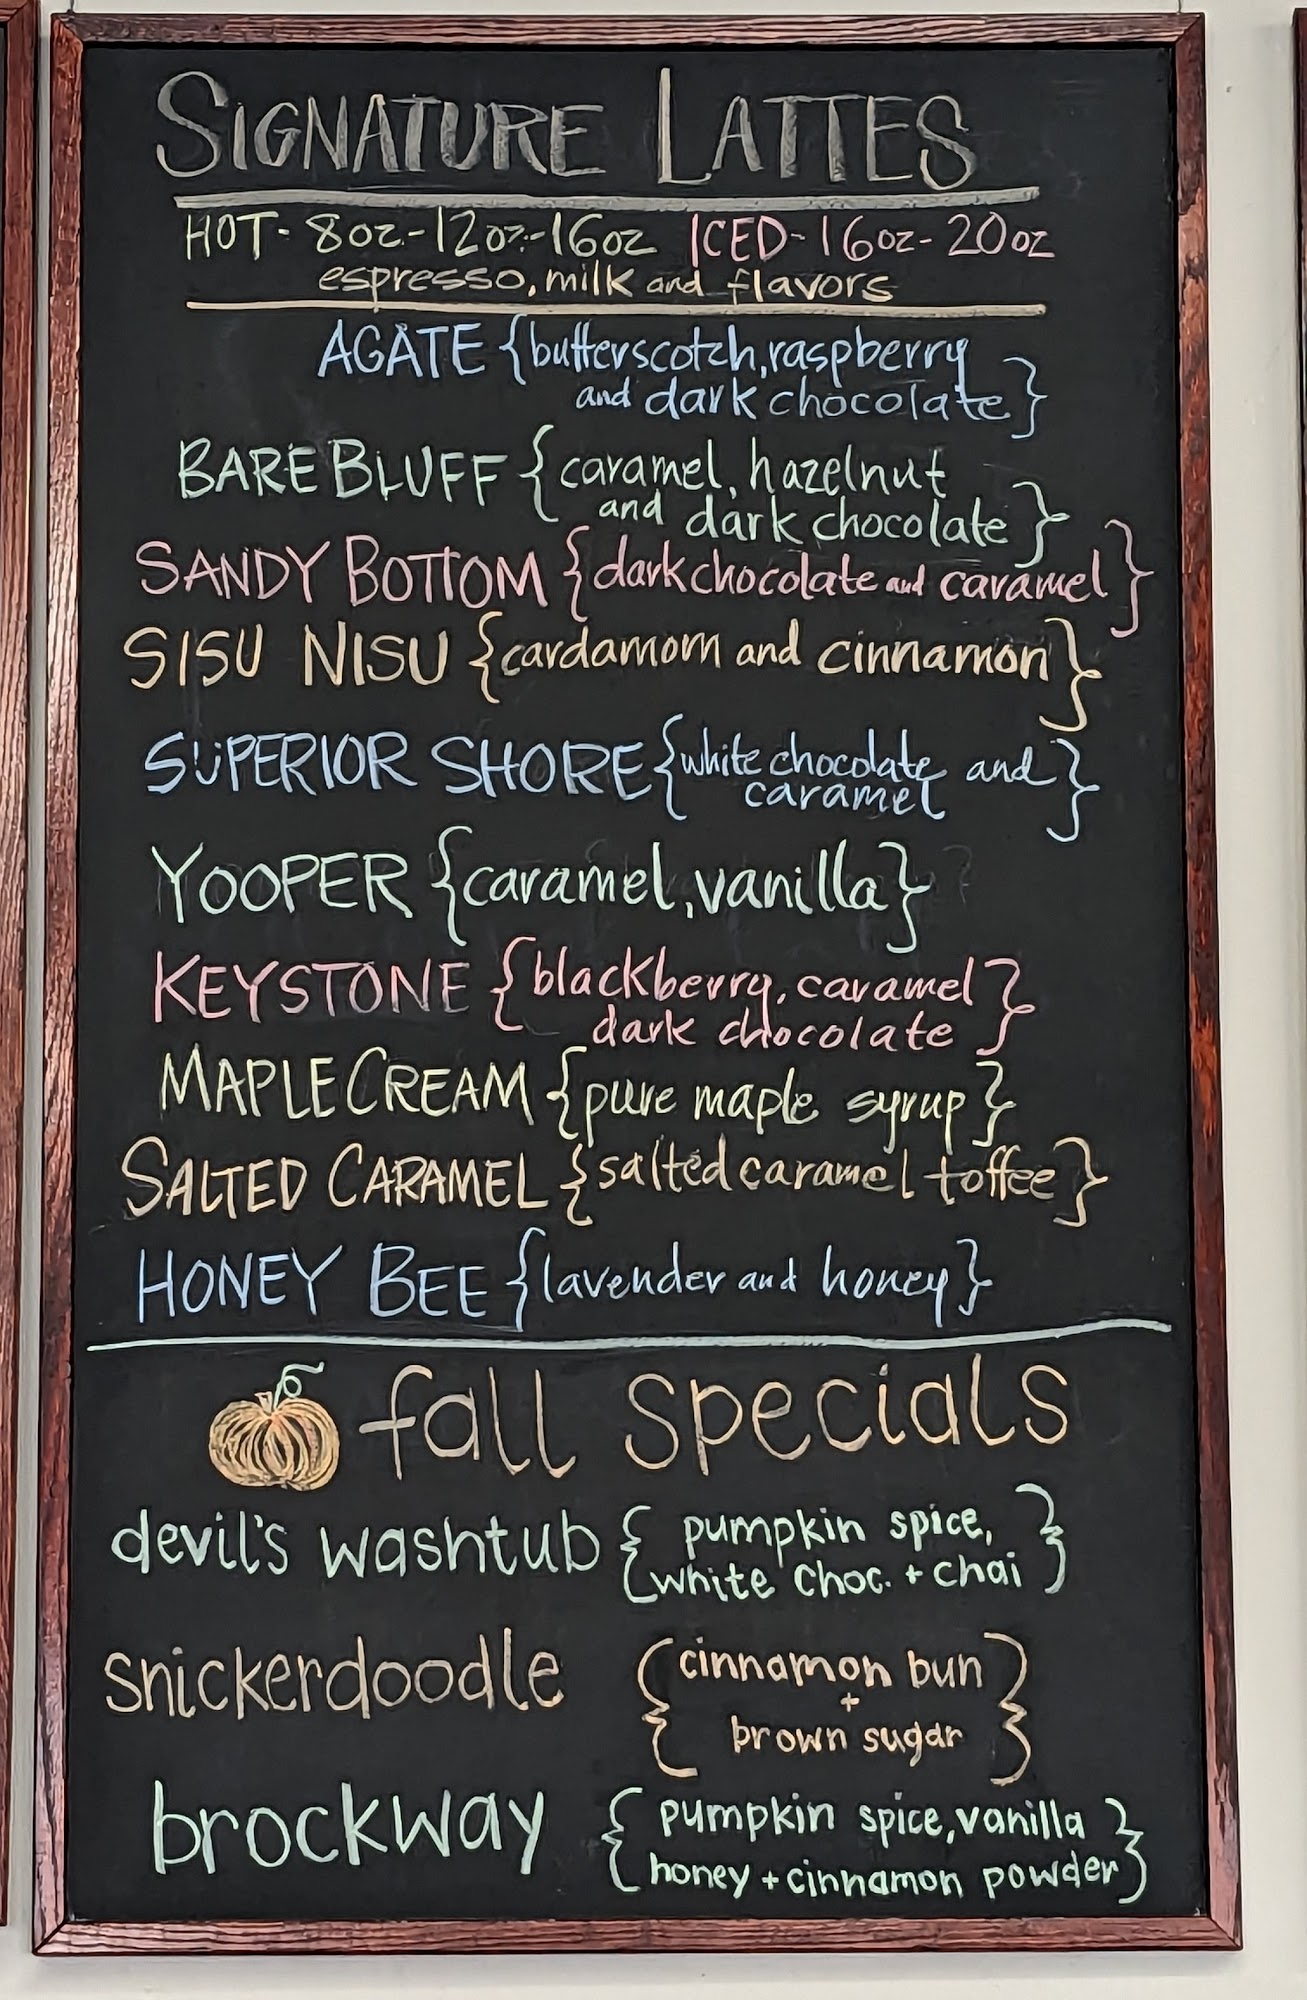 SIGNATURE LATTES
HOT- 8oz.-12oz.-16oz ICED-16oz-20oz
espresso, milk and flavors
AGATE {butterscotch, raspberry
and dark chocolate}
BARE BLUFF {caramel, hazelnut
and dark chocolate}
SANDY BOTTOM {dark chocolate and caramel}
SISU NISU {cardamom and cinnamon}
SUPERIOR SHORE {white chocolate and
caramel}
YOOPER {caramel, vanilla}
KEYSTONE {blackberry, caramel
dark chocolate}
MAPLE CREAM {pure maple syrup}
SALTED CARAMEL {salted caramel toffee}
HONEY BEE {lavender and honey}
fall specials
devil's washtub {pumpkin spice,
white choc. + chai}
snickerdoodle {cinnamon bun
+
brown sugar}
brockway {pumpkin spice, vanilla
honey + cinnamon powder}